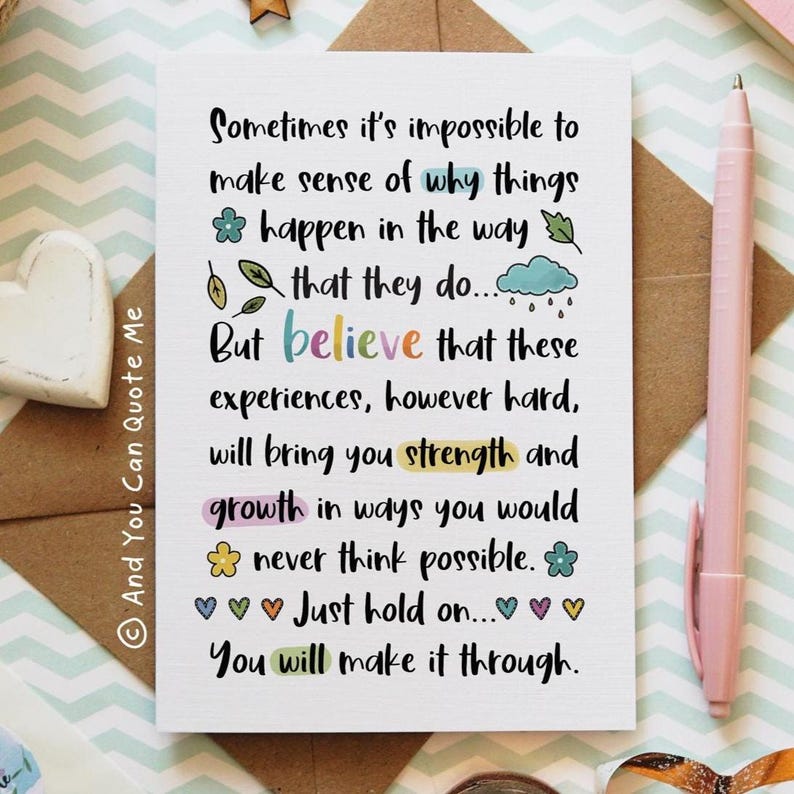 Sometimes it's impossible to
make sense of why things
happen in the way
that they do...
But believe that these
experiences, however hard,
will bring you strength and
growth in ways you would
never think possible.
Just hold on...
You will make it through.
© And You Can Quote Me